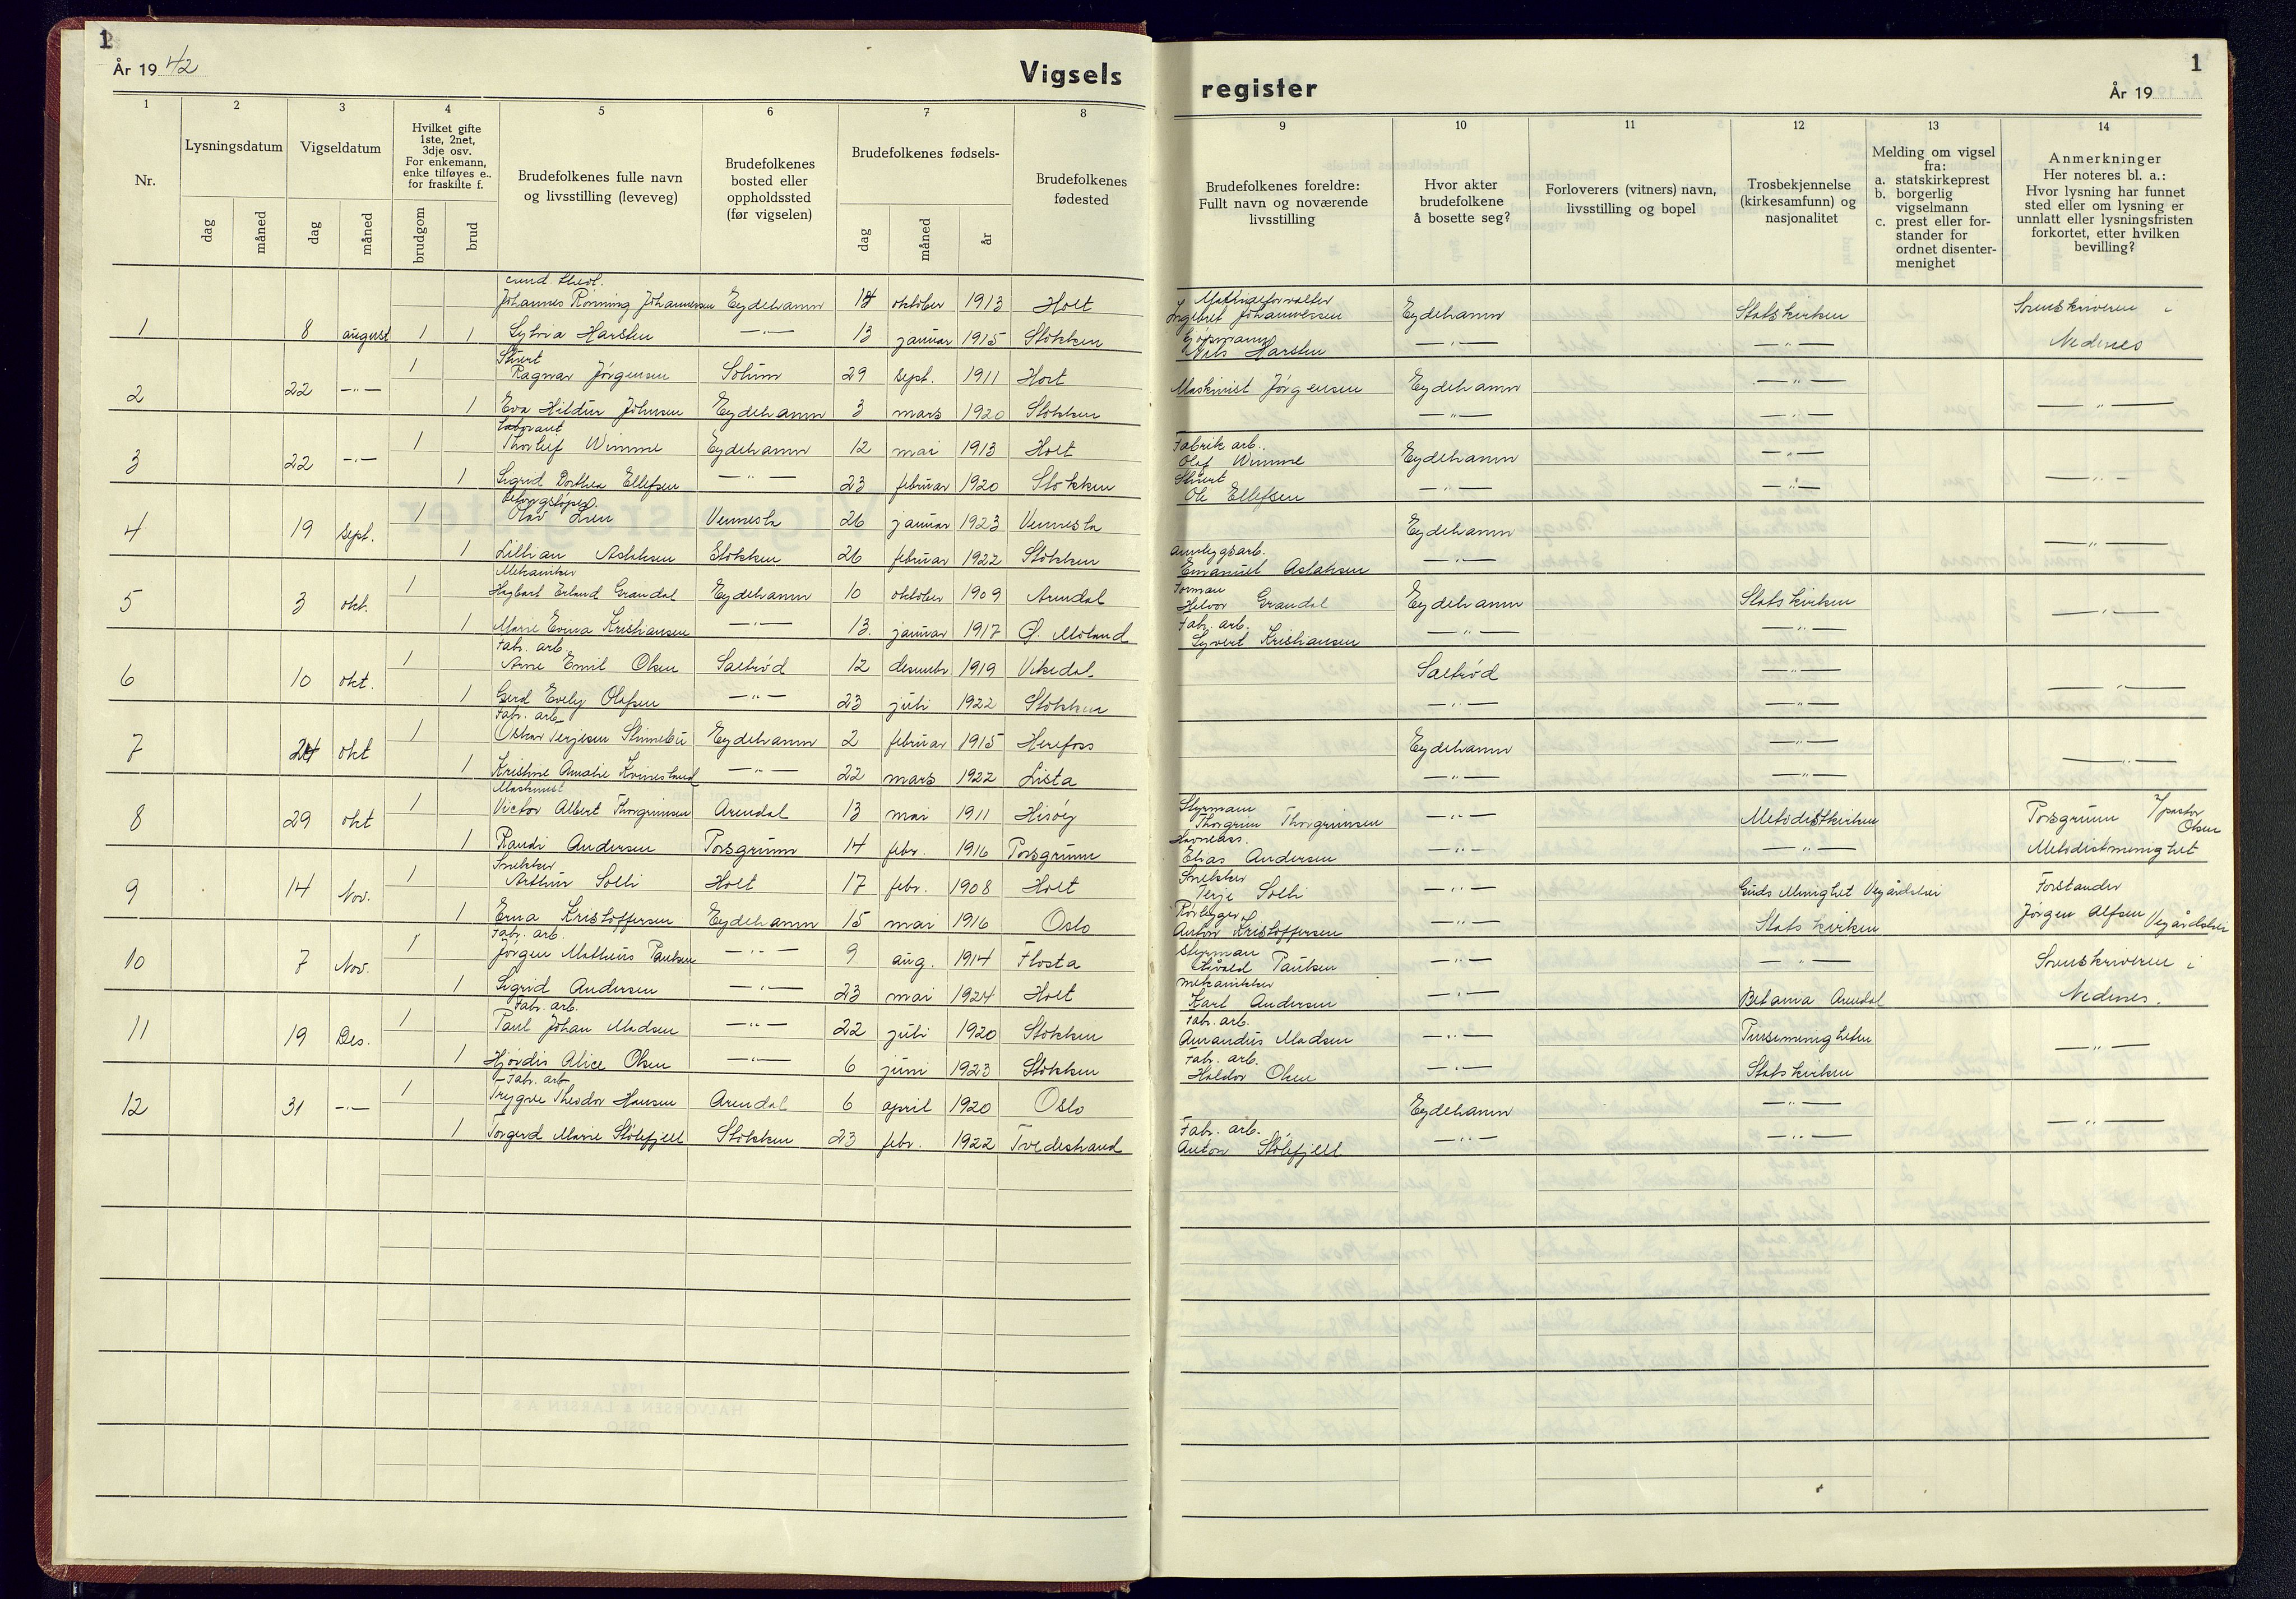 1
År 19 42
Vigsels
1 2 3 4 5 6 7 8
Nr.
Lysningsdatum
dag måned
Vigseldatum
dag måned
Hvilket gifte
1ste, 2net,
3dje osv.
For enkemann,
enke tilføyes e..
for fraskilte f.
brudgom brud
Brudefolkenes fulle navn
og livsstilling (leveveg)
Brudefolkenes
bosted eller
oppholdssted
(før vigselen)
Brudefolkenes fødsels-
dag måned år
Brudefolkenes
fødested
cand. theol.
Johannes Rønning Johannessen Eydehamn 14 oktober 1913 Holt
1 8 august 1 1 Harsten —"— 13 januar 1915 Stokken
Stuert
1 Ragnar Jørgensen Solum 29 sept. 1911 Holt
2 22 —"—
1 Eva Hildur Johnsen Eydehamn 3 mars 1920 Stokken
Laborant
1 Thorleif Wimme Eydehamn 12 mai 1913 Holt
3 22 —"—
1 Sigrid Dorthea Ellefsen —"— 23 februar 1920 Stokken
1 Olav Vennesla 26 januar 1923 Vennesla
4 19 sept.
1 Lillian Aslaksen Stokken 26 februar 1922 Stokken
Mekaniker
1 Hagbart Erland Grandal Eydehamn 10 oktober 1909 Arendal
5 3 okt.
1 Marie Kristiansen —"— 13. januar 1917 Ø. Moland
Fab. arb.
1 Arne Emil Olsen Saltrød 12 desembr 1919 Vikedal
6 10 okt.
1 Gerd Evely Olefsen —"— 23 juli 1922 Stokken
Fab. arb.
1 Oskar Terjesen Eydehamn 2 februar 1915 Herefoss
7 24 okt
1 Kristine Amalie Kvinesland —"— 22 mars 1922 Lista
Maskinist
1 Victor Albert Thorgrimsen Arendal 13 mai 1911 Hisøy
8 29 okt
1 Randi Andersen Porsgrunn 14 febr. 1916 Porsgrunn
Snekker
1 Arthur Solli Holt 17 febr. 1908 Holt
9 14 Nov.
1 Erna Kristoffersen Eydehamn 15 mai 1916 Oslo
Fab. arb.
1 Jørgen Matheus Paulsen —"— 9 aug. 1914 Flosta
10 7 Nov.
1 Sigrid Andersen —"— 23 mai 1924 Holt
Fab. arb.
1 Paul Johan Madsen —"— 22 juli 1920 Stokken
11 19 Des.
1 Hjørdis Alice Olsen —"— 6 juni 1923 Stokken
Fab. arb.
1 Trygve Theodor Hansen Arendal 6 april 1920 Oslo
12 31 —"—
1 Torgerd Marie Stølefjell Stokken 23 febr. 1922 Tvedestrand
1
register
År 19
9 10 11 12 13 14
Brudefolkenes foreldre:
Fullt navn og noværende
livsstilling
Hvor akter
brudefolkene
å bosette seg?
Forloverers (vitners) navn,
livsstilling og bopel
Trosbekjennelse
(kirkesamfunn) og
nasjonalitet
Melding om vigsel
fra:
a. statskirkeprest
b. borgerlig
vigselmann
c. prest eller for-
stander for
ordnet disenter-
menighet
Anmerkninger
Her noteres bl. a.:
Hvor lysning har funnet
sted eller om lysning er
unnlatt eller lysningsfristen
forkortet, etter hvilken
bevilling?
Ingebret Johannessen Eydehamn Statskirken Sorenskriveren i
Nils Harsten —"— —"— Nedenes
Maskinist Jørgensen Eydehamn —"—
—"— —"— —"—
Fabrik arb.
Olef Wimme Eydehamn —"—
Stuert
Ole Ellefsen —"— —"— —"—
Eydehamn
Anleggsarb.
Emanuel Aslaksen —"— —"—
Forman
Halvor Grandal Eydehamn Statskirken
Fab. arb.
Syvert Kristiansen —"— —"— —"—
Saltrød —"—
—"— —"— —"—
Eydehamn —"—
—"— —"— —"—
Styrmann
Thorgrim Thorgrimsen —"— Metodistkirken Porsgrunn v/ pastor Olsen
Elias Andersen —"— —"— Metodistmenighet
Snekker
Terje Solli —"— Guds Menighet Vegårdshei Forstander
Rørlegger
Anton Kristoffersen —"— Statskirken Jørgen Alfsen Vegårdshei
Styrman
Paulsen —"— —"— Sorenskriveren i
mekanikker
Karl Andersen —"— Betania Arendal Nedenes.
Fab. arb.
Amandus Madsen —"— Pinsemenigheten
Fab. arb.
Haldor Olsen —"— Statskirken —"—
Eydehamn —"—
Fab. arb.
Anton Stølefjell —"— —"— —"—